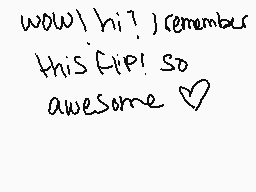 wow! hi? I remember
this flip! so
awesome ♡